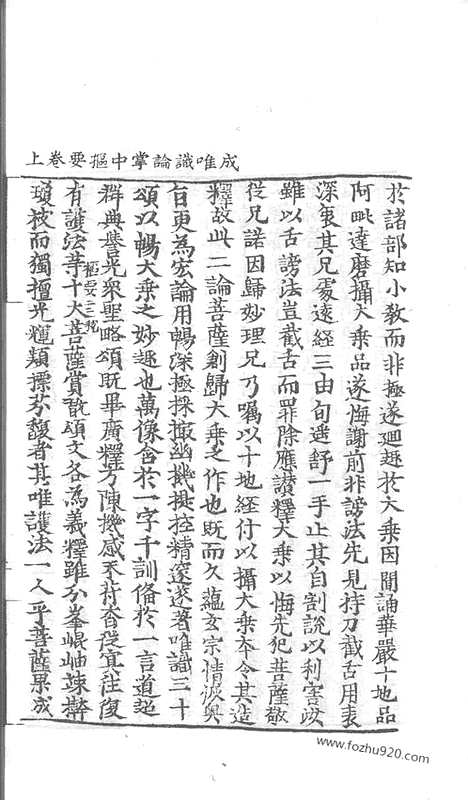 成唯識論掌中樞要卷上
於諸部知小教而非極遂廻趣於大乗因聞誦華嚴十地品
阿毗達磨攝大乗品遂悔謝前非謗法先見持刀截舌用表
深衷其兄處遠経三由旬遥舒一手止其自割說以利害汝
雖以舌謗法豈截舌而罪除應讃釋大乗以悔先犯菩薩敬
從兄諾因歸妙理兄乃囑以十地経付以攝大乗本令其造
釋故此二論菩薩創歸大乗之作也既而久蘊玄宗情波奥
旨更為宏論用暢深極採撮幽機提控精邃遂著唯識三十
頌以暢大乗之妙趣也萬像含於一字千訓備於一言道超
群典譽光衆聖略頌既畢廣釋方陳機感不符杳從冥往復
有護法等十大菩薩賞翫頌文各為義釋雖分峯崐岫竦幹
瓊枝而獨擅光輝頴摽芬馥者其唯護法一人乎菩薩果成
www.fozhu920.com